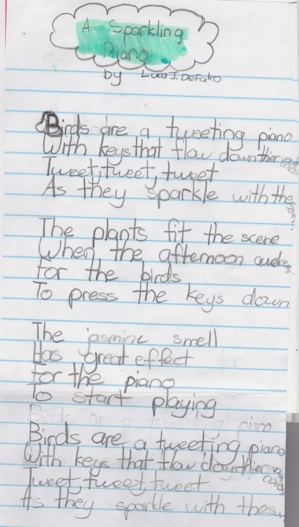 A Sparkling
Piano
by Luca J. DeFalco
Birds are a tweeting piano
With keys that flow down their
Tweet, tweet, tweet
As they sparkle with the
The plants fit the scene
When the afternoon awakes
for the birds
To press the keys down
The jasmine smell
Has great effect
for the piano
To start playing
Birds are a tweeting piano
With keys that flow down their
Tweet, tweet, tweet
As they sparkle with the